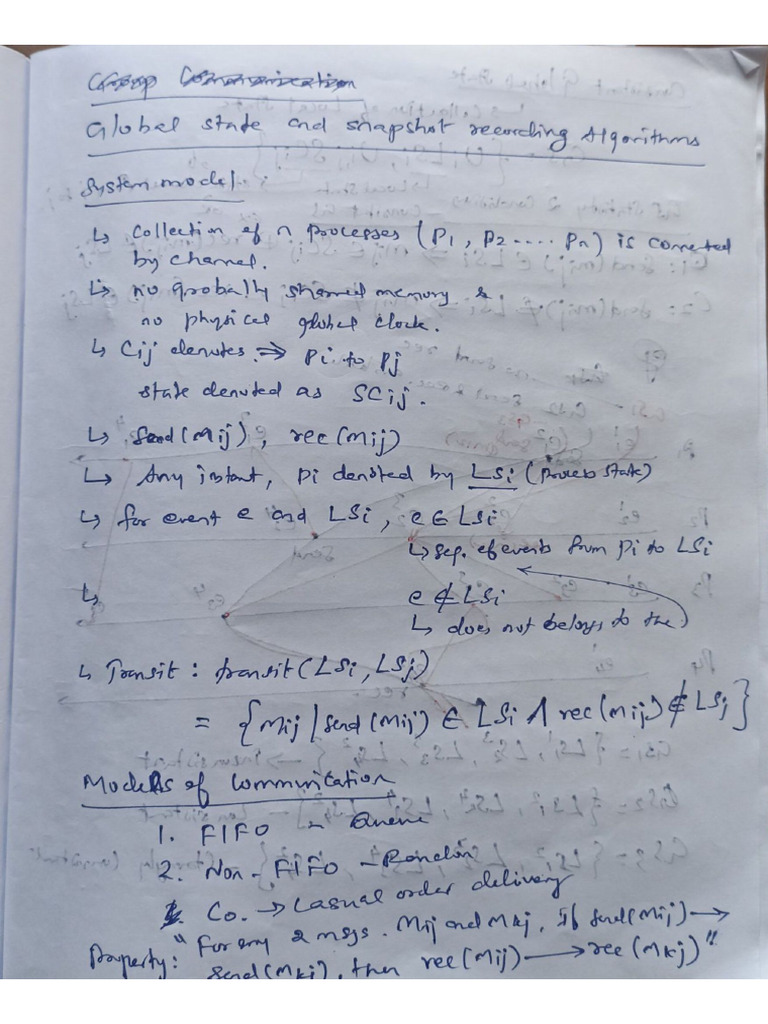 Group Communication
Global state and snapshot recording Algorithms
System model :
↳ Collection of n processes (P1, P2 .... Pn) is connected
by channel.
↳ no grobally shared memory &
no physical global clock.
↳ Cij denotes ⇒ Pi to Pj
state denoted as SCij.
↳ Send(Mij), rec(Mij)
↳ Any instant, Pi denoted by LSi (Process state)
↳ for event e and LSi, e ∈ LSi
↳ seq. of events from Pi to LSi
↳ e ∉ LSi
↳ does not belongs to the
↳ Transit : transit(LSi, LSj)
= {Mij | send(Mij) ∈ LSi ∧ rec(Mij) ∉ LSj}
Models of Communication
1. FIFO - Queue
2. Non-FIFO - Random
Co. → Casual order delivery
Property: "For any 2 msgs. Mij and Mkj, if send(Mij) →
send(Mkj), then rec(Mij) → rec(Mkj)"